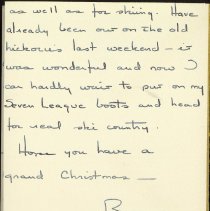 as well as for skiing. Have
already been out on the old
hickories last weekend — it
was wonderful and now I
can hardly wait to put on my
Seven League boots and head
for real ski country.
Hope you have a
grand Christmas —
B